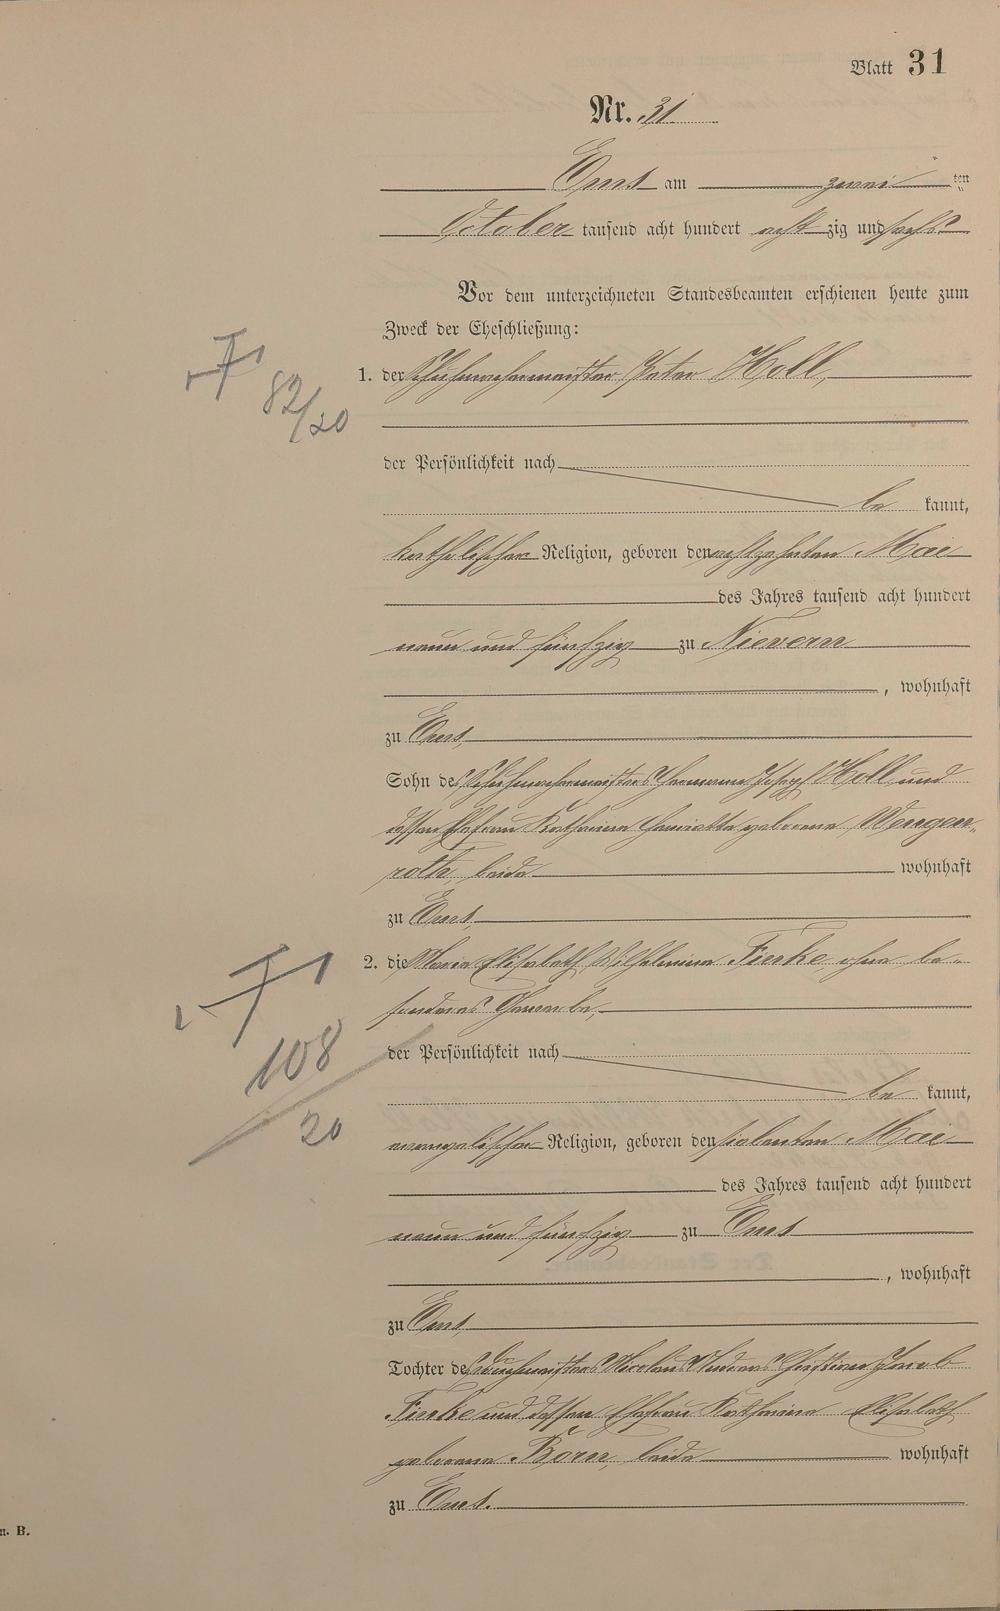 Blatt 31
Nr. 31
Ems am zwei ten
October tausend acht hundert acht zig und sechs
Vor dem unterzeichneten Standesbeamten erschienen heute zum
Zweck der Eheschließung:
1. der Schuhmachermeister Peter Holl,
82/20
der Persönlichkeit nach
be kannt,
katholischer Religion, geboren den achtzehnten Mai
des Jahres tausend acht hundert
neun und fünfzig zu Nievern
, wohnhaft
zu Ems,
Sohn des Schuhmachermeisters Hermann Joseph Holl und
dessen Ehefrau Katharina Henriette geborene Wengen-
roth, beide wohnhaft
zu Ems,
2. die Maria Elisabeth Wilhelmina Finke, ohne be-
sonderes Gewerbe,
108/20
der Persönlichkeit nach
be kannt,
evangelischer Religion, geboren den siebenten Mai
des Jahres tausend acht hundert
neun und fünfzig zu Ems
, wohnhaft
zu Ems,
Tochter des Christian Jacob
Finke und dessen Ehefrau Katharina Elisabeth
geborene Born, beide wohnhaft
zu Ems.
n. B.